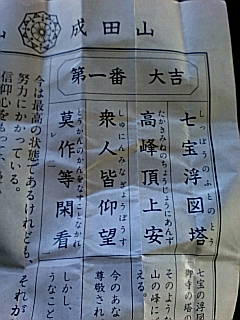 成田山
第一番 大吉
七宝浮図塔
しっぽうのふとのとう
高峰頂上安
たかきみねのちょうじょうにあんず
衆人皆仰望
しゅにんみなぎょうぼうす
莫作等閑看
とうかんのかんをなすことなかれ
七宝の浮図
御寺の塔の
山の峰に
える。
そのよう
今のあな
尊敬され
しかし、
うなこと
今は最高の状態であるけれども、それが
努力にかかっている。
信仰心をもっ